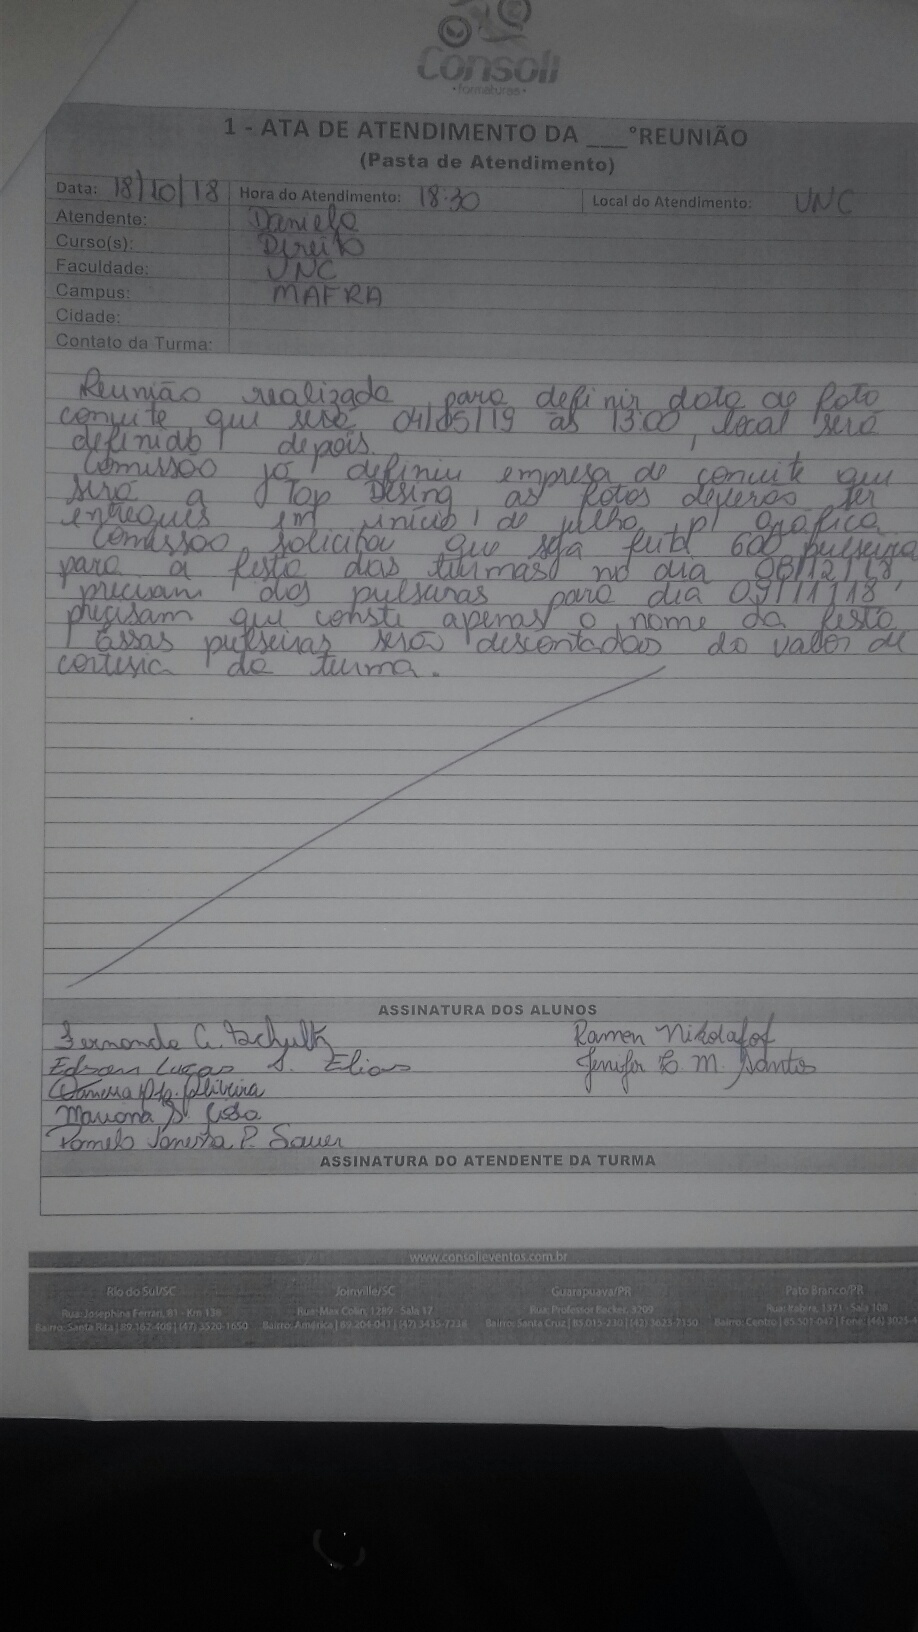 Consoli
•formaturas•
1 - ATA DE ATENDIMENTO DA ___°REUNIÃO
(Pasta de Atendimento)
Data: 18/10/18 Hora do Atendimento: 18:30 Local do Atendimento: UNC
Atendente: Daniela
Curso(s): Direito
Faculdade: UNC
Campus: MAFRA
Cidade:
Contato da Turma:
Reunião realizada para definir data de foto
convite que será 04/05/19 às 13:00, local será
definido depois.
Comissão já definiu empresa de convite que
será a Top Desing as fotos deverão ser
entregues em início de julho p/ gráfica
Comissão solicitou que seja 600 pulseira
para a festa das turmas no dia 08/12/18,
precisam das pulseiras para dia 09/11/18,
precisam que conste apenas o nome da festa
Essas pulseiras serão descontadas do valor de
cortesia da turma.
ASSINATURA DOS ALUNOS
Fernanda C. Ramen Nikolafof
Edson Lucas S. Elias Jenifer C. M. Santos
Oliveira
Mariana
Pamela P. Sauer
ASSINATURA DO ATENDENTE DA TURMA
www.consolieventos.com.br
Rio do Sul/SC Joinville/SC Guarapuava/PR Pato Branco/PR
Rua: Josephina Ferrari, 81 - Km 138 Rua: Max Colin, 1289 - Sala 17 Rua: Professor Becker, 3209 Rua: Itabira, 1371 - Sala 108
Bairro: Santa Rita | 89.162-408 | (47) 3520-1650 Bairro: América | 89.204-041 | (47) 3435-7238 Bairro: Santa Cruz | 85.015-230 | (42) 3623-2150 Bairro: Centro | 85.501-047 | Fone: (46) 3025-4